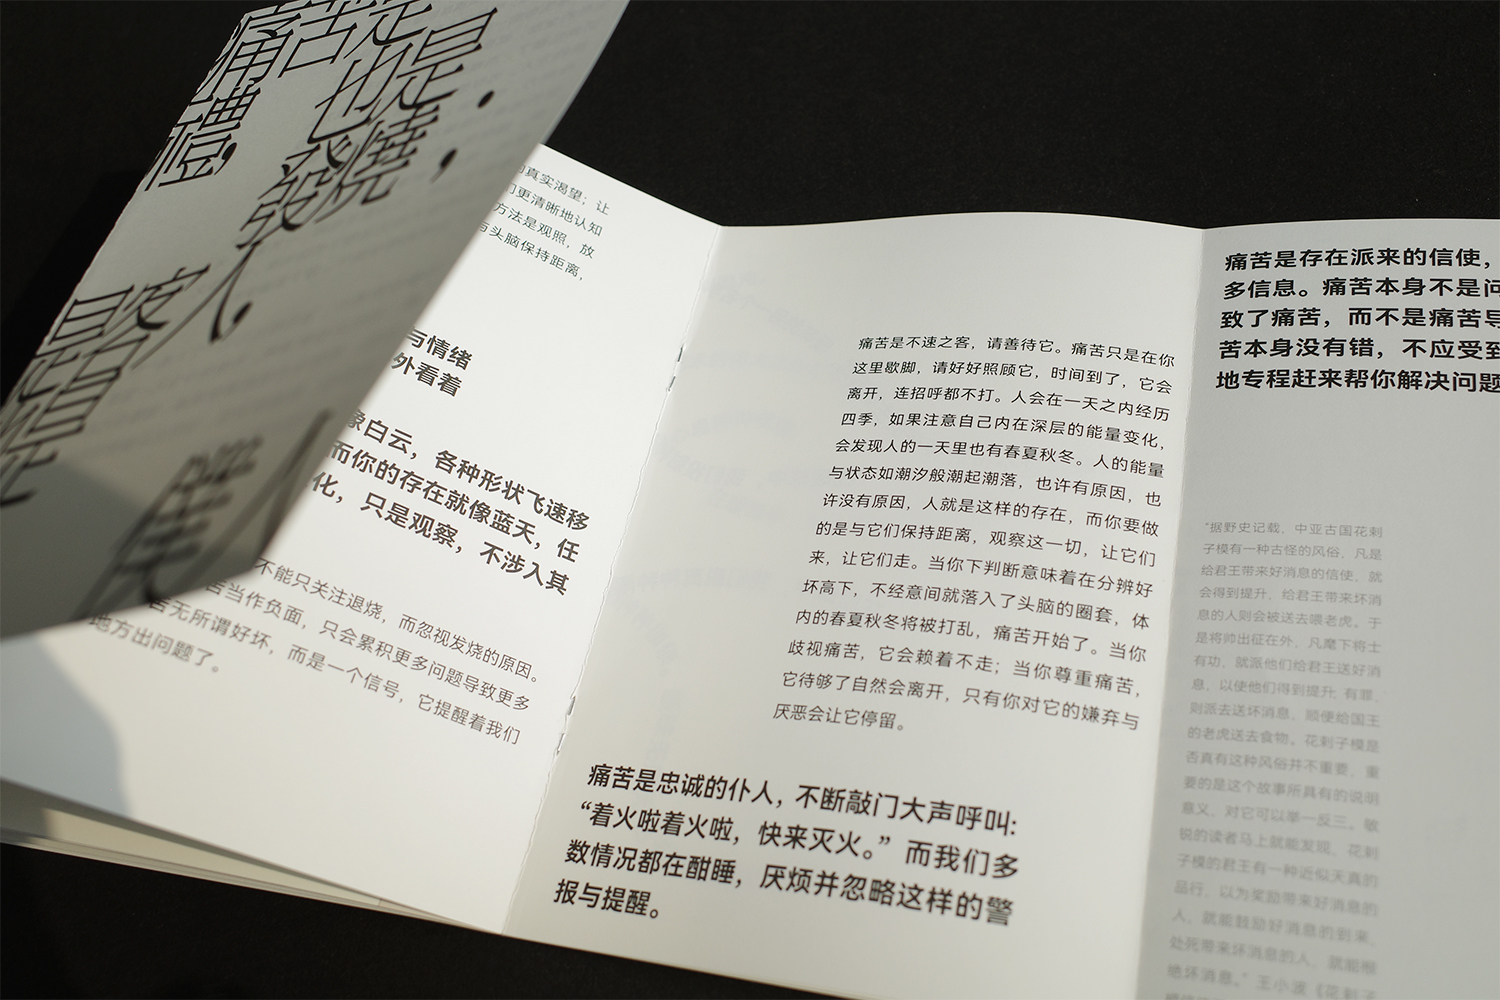 痛苦是
也是，
禮，
燒，
發
人，
夜
的真实渴望；让
们更清晰地认知
方法是观照，放
与头脑保持距离，
与情绪
外看着
像白云，各种形状飞速移
而你的存在就像蓝天，任
化，只是观察，不涉入其
不能只关注退烧，而忽视发烧的原因。
苦当作负面，只会累积更多问题导致更多
苦无所谓好坏，而是一个信号，它提醒着我们
地方出问题了。
痛苦是不速之客，请善待它。痛苦只是在你
这里歇脚，请好好照顾它，时间到了，它会
离开，连招呼都不打。人会在一天之内经历
四季，如果注意自己内在深层的能量变化，
会发现人的一天里也有春夏秋冬。人的能量
与状态如潮汐般潮起潮落，也许有原因，也
许没有原因，人就是这样的存在，而你要做
的是与它们保持距离，观察这一切，让它们
来，让它们走。当你下判断意味着在分辨好
坏高下，不经意间就落入了头脑的圈套，体
内的春夏秋冬将被打乱，痛苦开始了。当你
歧视痛苦，它会赖着不走；当你尊重痛苦，
它待够了自然会离开，只有你对它的嫌弃与
厌恶会让它停留。
痛苦是忠诚的仆人，不断敲门大声呼叫：
“着火啦着火啦，快来灭火。”而我们多
数情况都在酣睡，厌烦并忽略这样的警
报与提醒。
痛苦是存在派来的信使，
多信息。痛苦本身不是问
致了痛苦，而不是痛苦导
苦本身没有错，不应受到
地专程赶来帮你解决问题
“据野史记载，中亚古国花剌
子模有一种古怪的风俗，凡是
给君王带来好消息的信使，就
会得到提升，给君王带来坏消
息的人则会被送去喂老虎。于
是将帅出征在外，凡麾下将士
有功，就派他们给君王送好消
息，以使他们得到提升；有罪，
则派去送坏消息，顺便给国王
的老虎送去食物。花剌子模是
否真有这种风俗并不重要，重
要的是这个故事所具有的说明
意义，对它可以举一反三。敏
锐的读者马上就能发现，花剌
子模的君王有一种近似天真的
品行，以为奖励带来好消息的
人，就能鼓励好消息的到来，
处死带来坏消息的人，就能根
绝坏消息。”王小波《花剌子